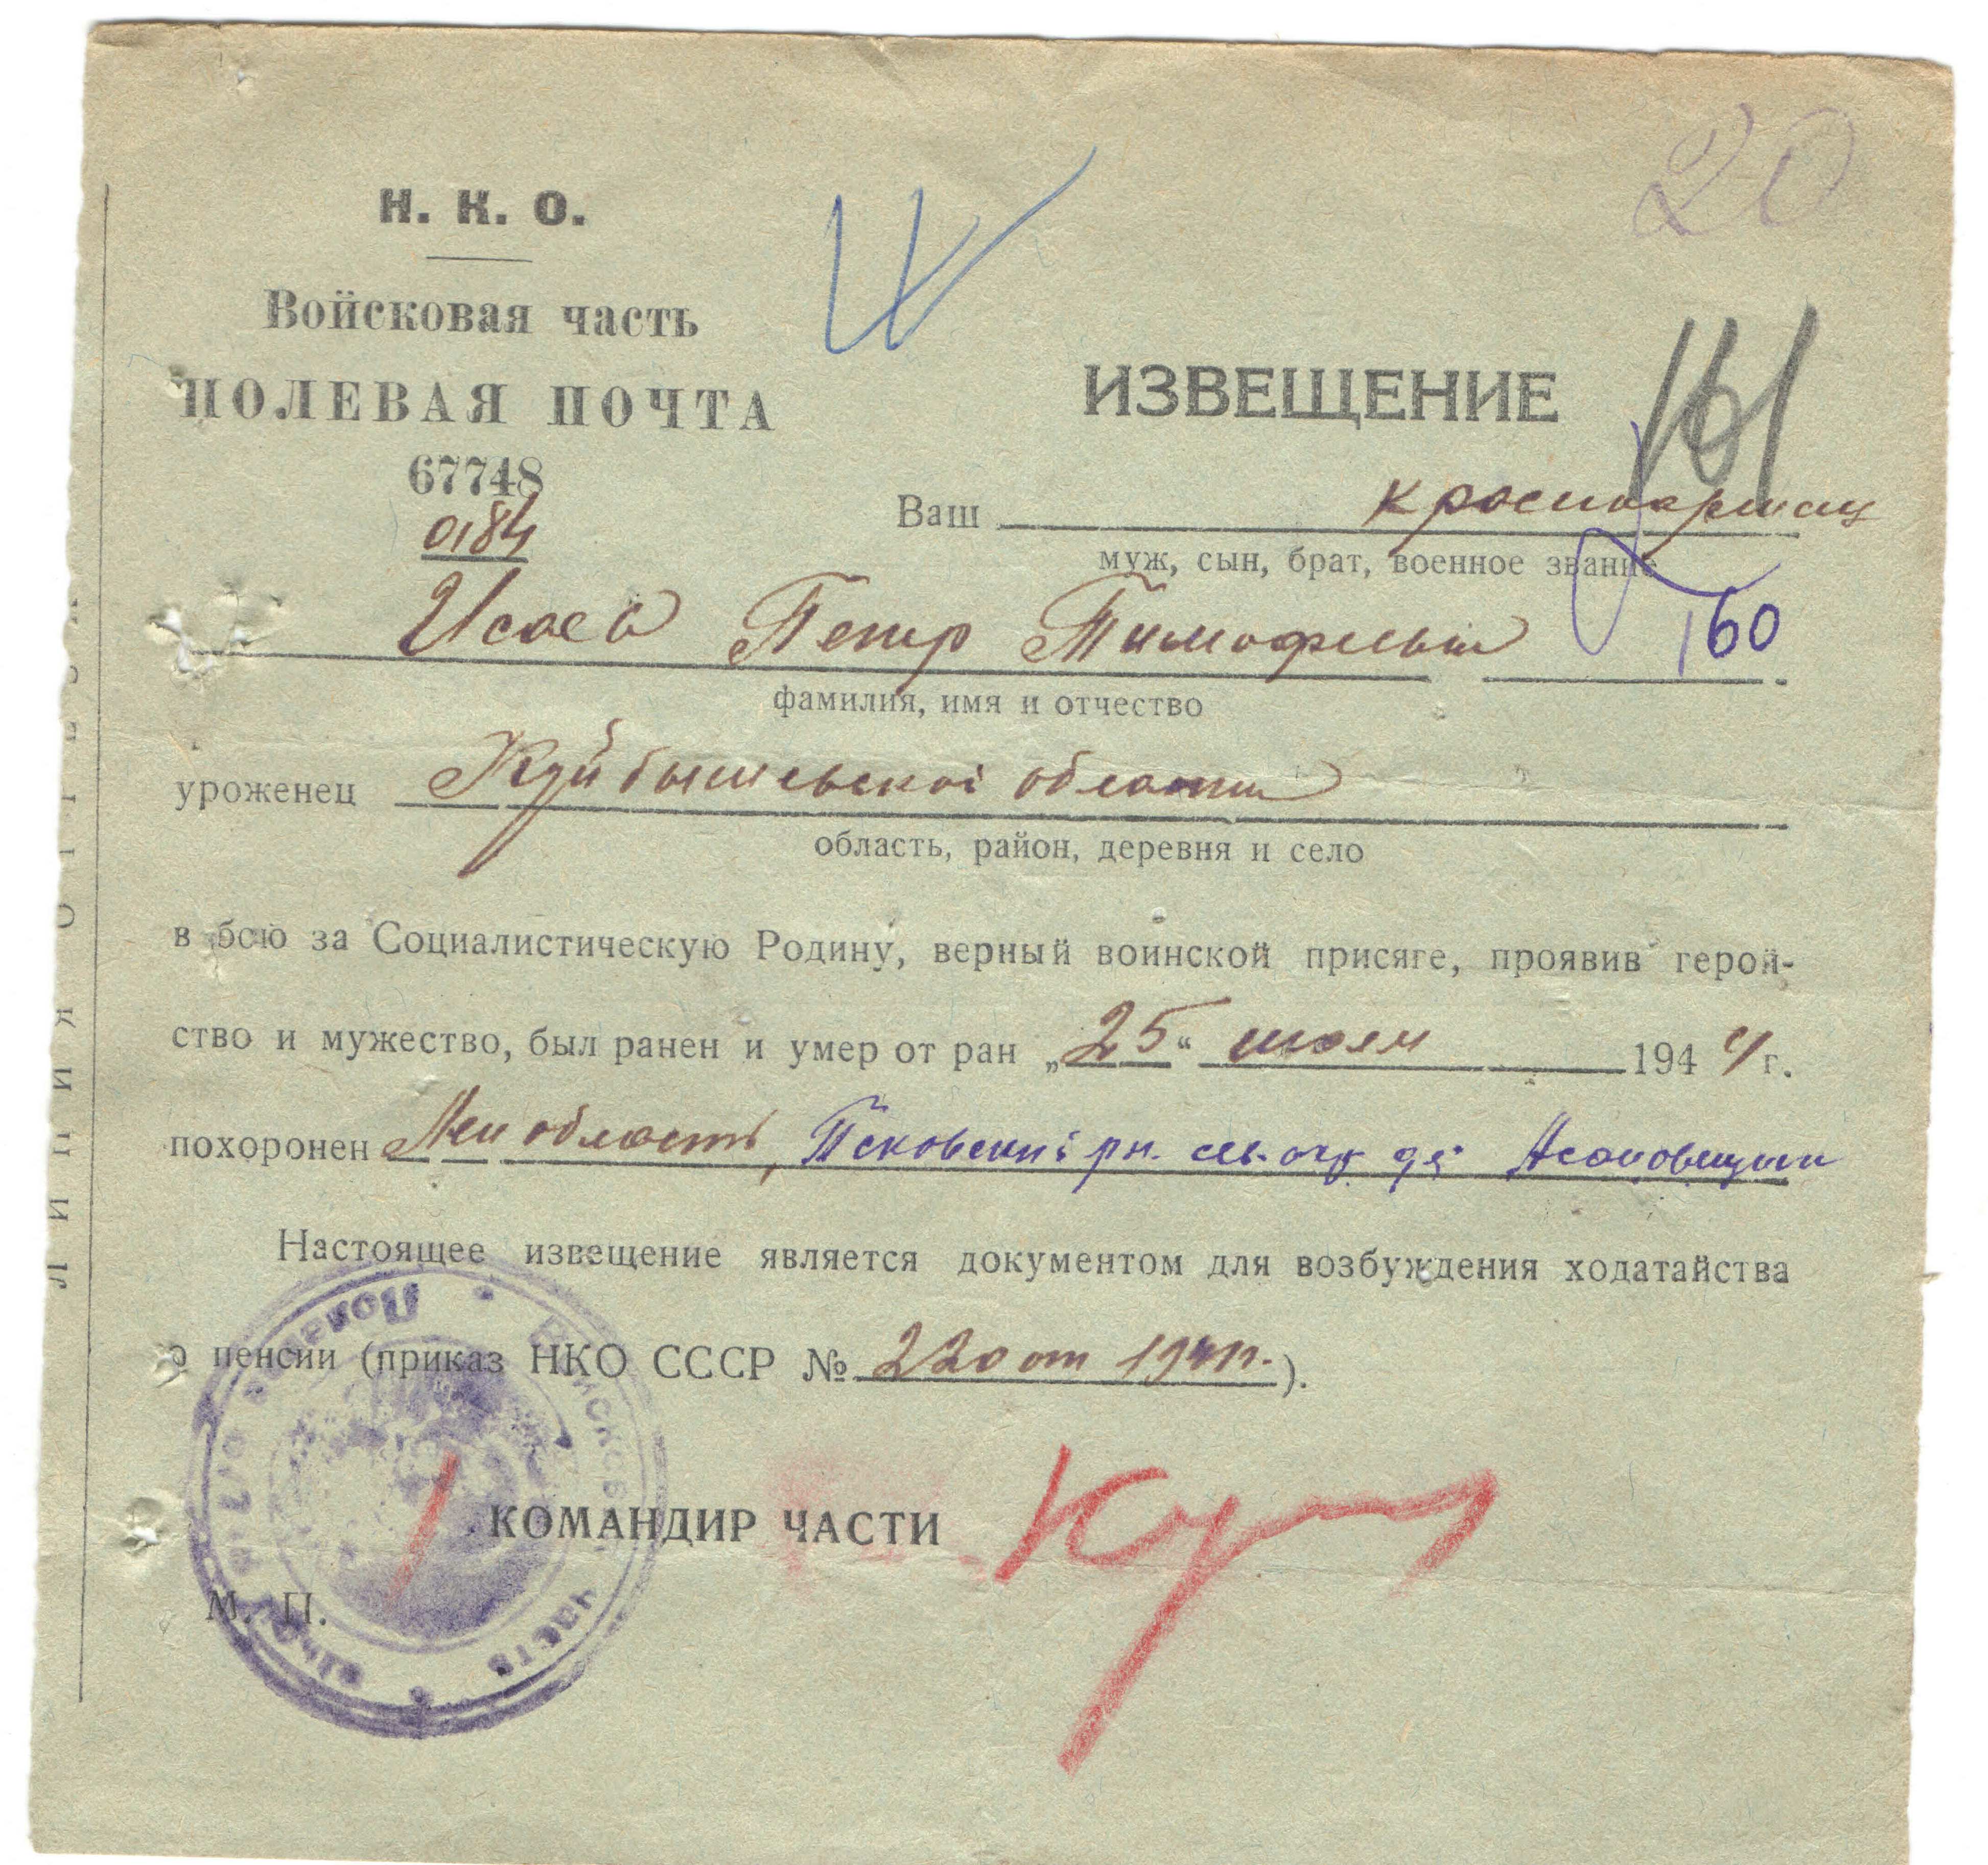 20
Н. К. О.
Войсковая часть
ПОЛЕВАЯ ПОЧТА
67748
0184
ИЗВЕЩЕНИЕ
161
Ваш красноармеец
муж, сын, брат, военное звание
Исаев Петр Тимофеевич
160
фамилия, имя и отчество
уроженец Куйбышевской области
область, район, деревня и село
в бою за Социалистическую Родину, верный воинской присяге, проявив герой-
ство и мужество, был ранен и умер от ран „25“ июля 1944 г.
похоронен Лен область, Псковский рн. дер
Настоящее извещение является документом для возбуждения ходатайства
о пенсии (приказ НКО СССР № 220 от 1941г.).
КОМАНДИР ЧАСТИ
М. П.
Войсковая часть
Полевая почта
ЛИНИЯ ОТРЕЗА